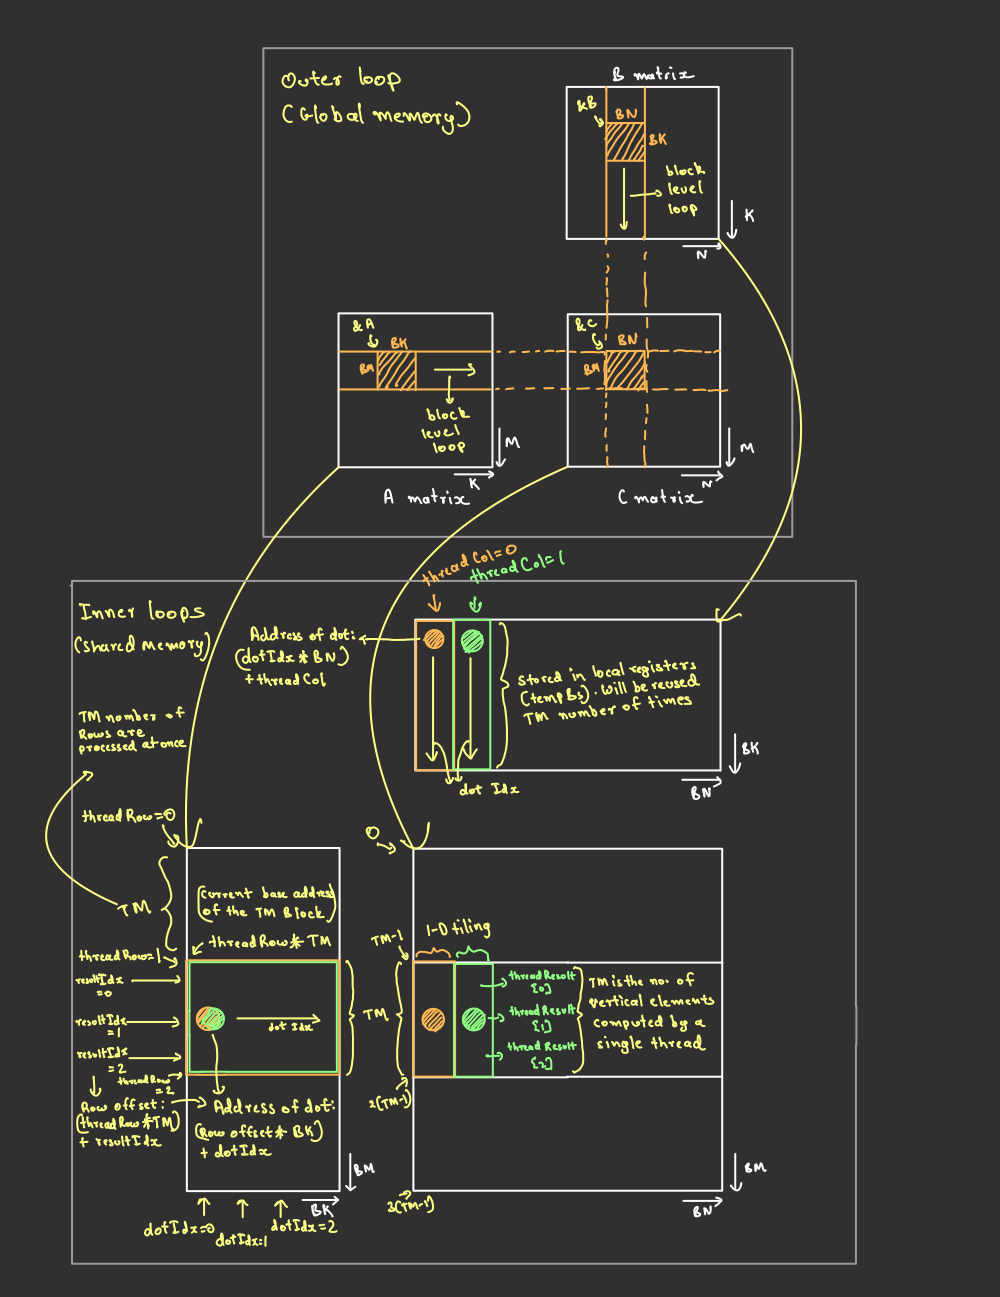 Outer loop
(Global memory)
B matrix
&B
BN
BK
block
level
loop
K
N
&A
BK
BM
block
level
loop
M
K
A matrix
&C
BN
BM
M
N
C matrix
threadCol=0
threadCol=1
Inner loops
(Shared memory)
Address of dot:
(dotIdx * BN)
+ threadCol
stored in local registers
(tempBs). Will be reused
TM number of times
dot Idx
BK
BN
TM number of
Rows are
processed at once
threadRow=0
TM
(Current base address
of the TM Block)
threadRow * TM
threadRow=1
resultIdx
=0
resultIdx
=1
resultIdx
=2
threadRow
=2
Row offset:
(threadRow*TM)
+ resultIdx
dot Idx
TM
Address of dot:
(Row offset * BK)
+ dotIdx
BM
BK
dotIdx=0
dotIdx=1
dotIdx=2
0
TM-1
1-D tiling
threadResult
[0]
threadResult
[1]
threadResult
[2]
TM is the no. of
vertical elements
computed by a
single thread
2(TM-1)
3(TM-1)
BM
BN